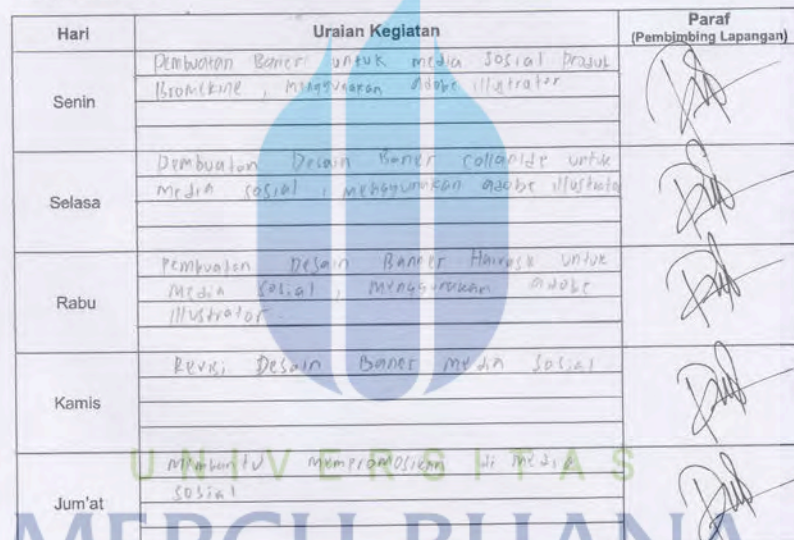 Hari Uraian Kegiatan Paraf
(Pembimbing Lapangan)
Senin
Pembuatan Baner untuk media sosial produk
, menggunakan adobe illustrator
Selasa
Pembuatan Desain Baner untuk
media sosial , menggunakan adobe illustrator
Rabu
Pembuatan Desain Banner untuk
media sosial , menggunakan adobe
illustrator.
Kamis
Revisi Desain Baner media sosial
Jum'at
Membantu mempromosikan di media
sosial
UNIVERSITAS
MERCU BUANA